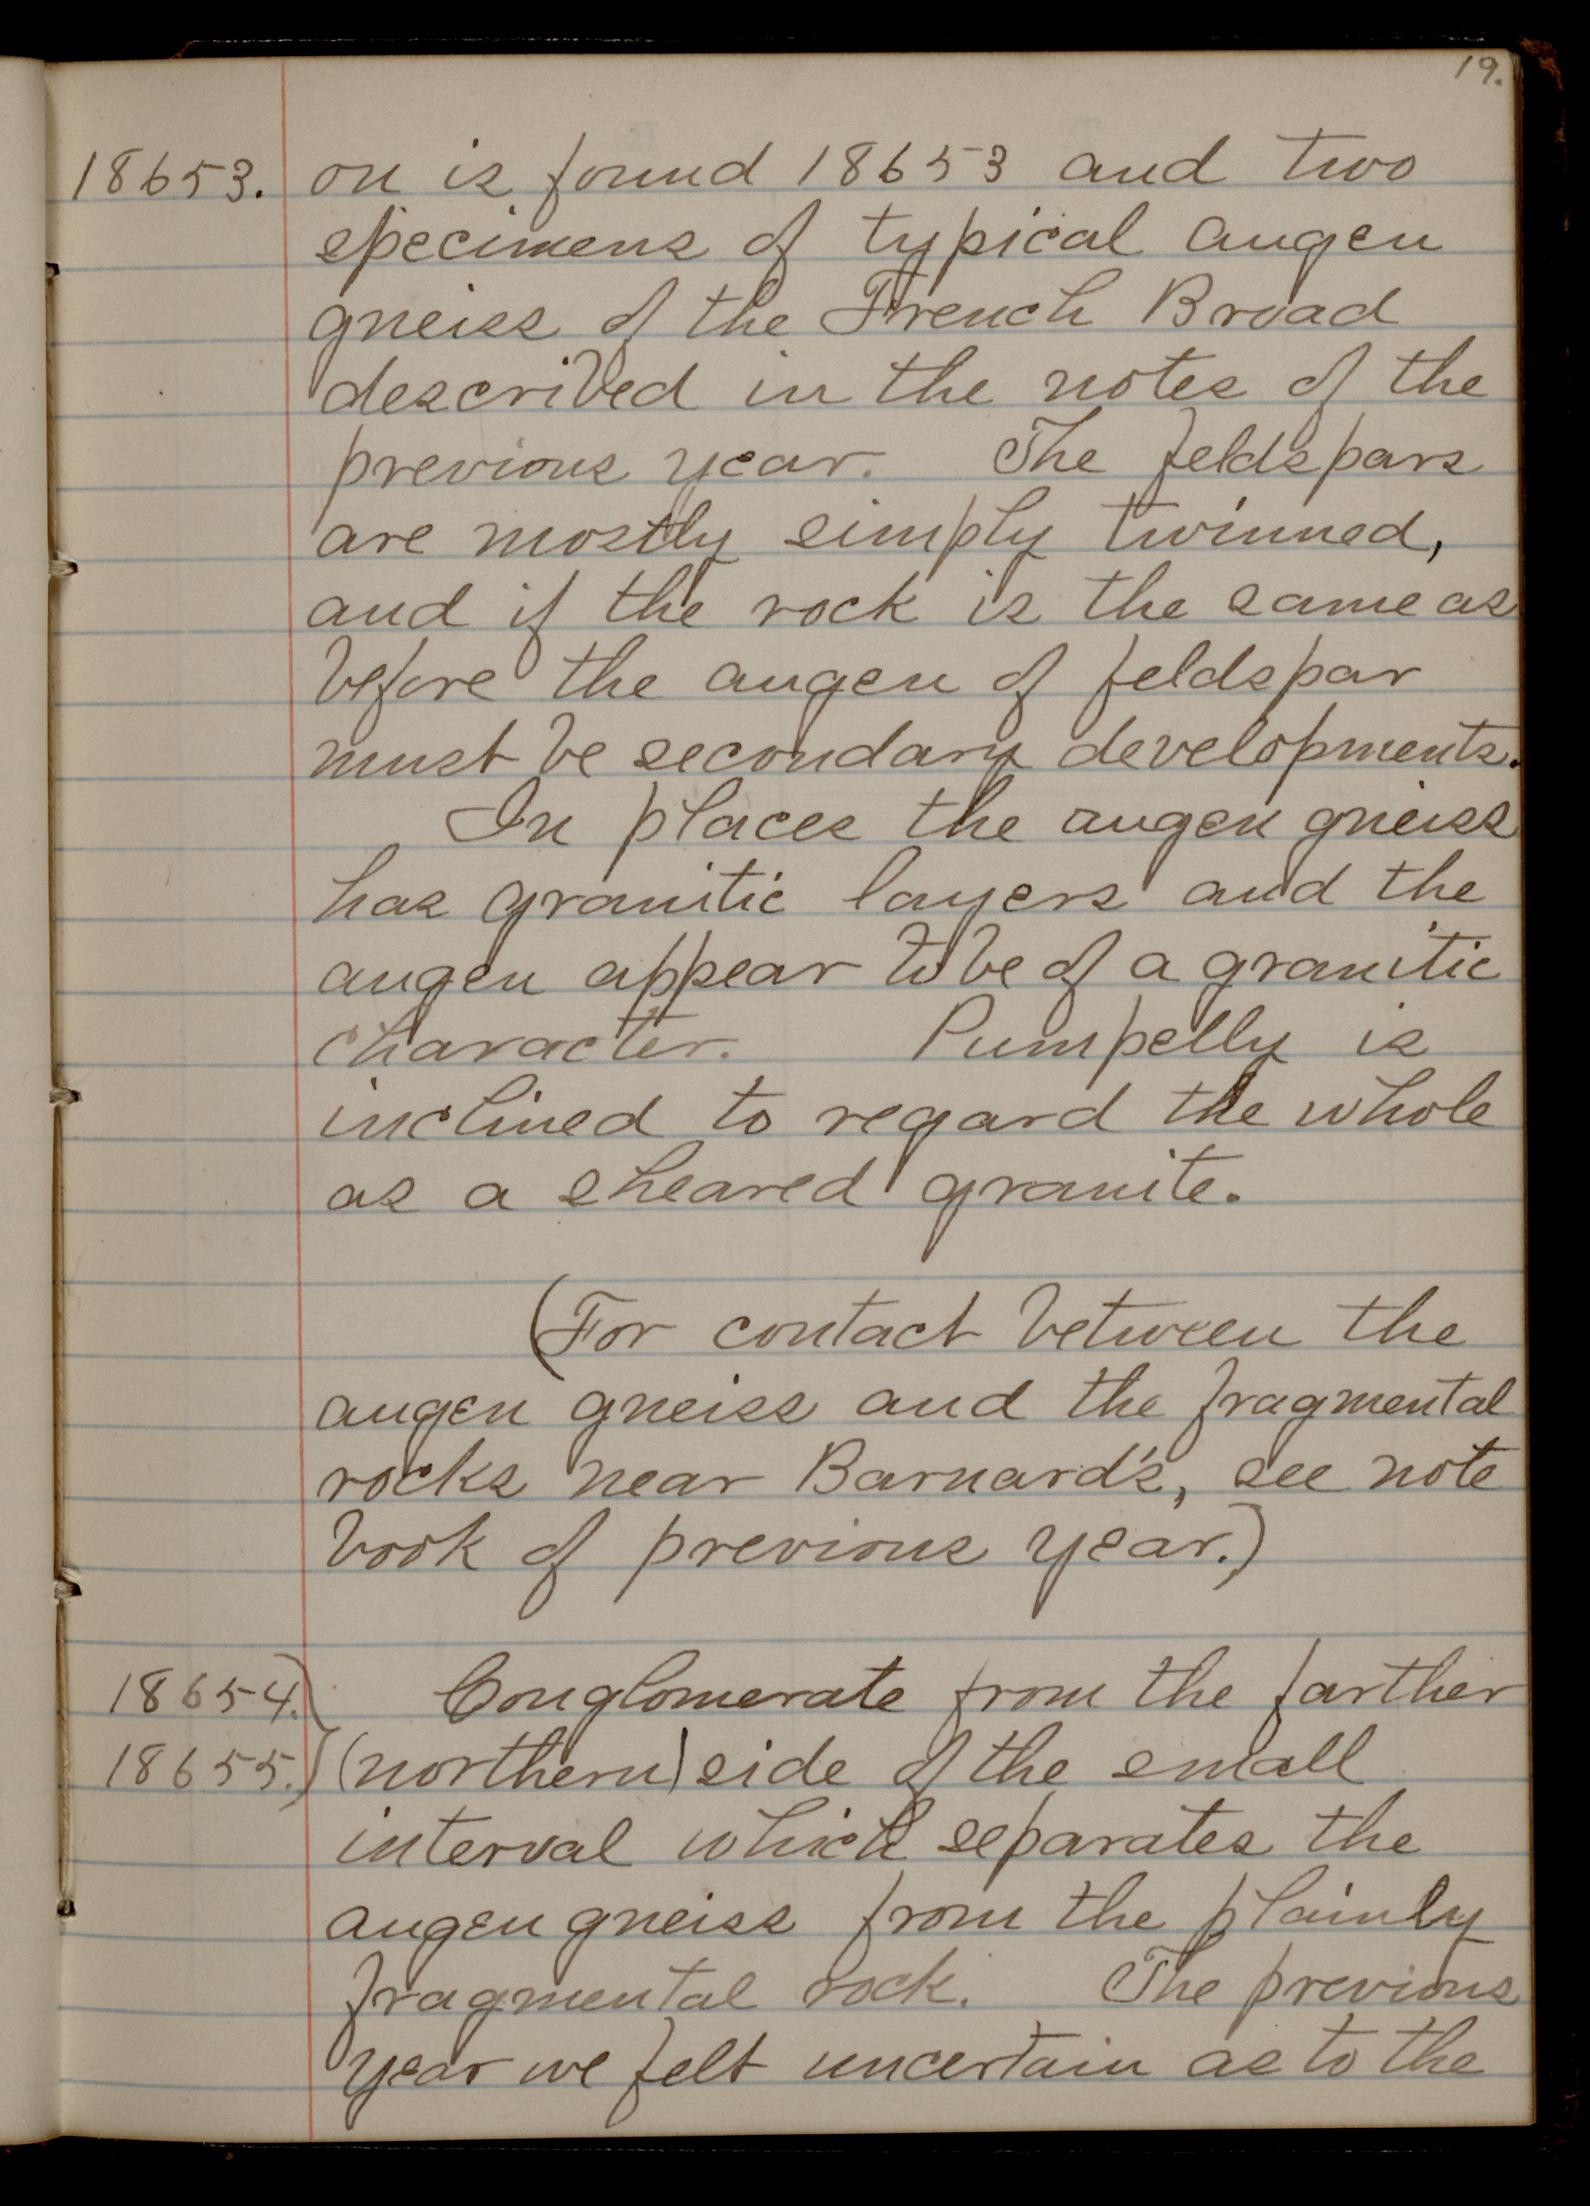 19.
18653. on is found 18653 and two
specimens of typical augen
gneiss of the French Broad
described in the notes of the
previous year. The feldspars
are mostly simply twinned,
and if the rock is the same as
before the augen of feldspar
must be secondary developments.
In places the augen gneiss
has granitic layers and the
augen appear to be of a granitic
character. Pumpelly is
inclined to regard the whole
as a sheared granite.
(For contact between the
augen gneiss and the fragmental
rocks near Barnard's, see note
book of previous year.)
18654.) Conglomerate from the farther
18655.) (northern) side of the small
interval which separates the
augen gneiss from the plainly
fragmental rock. The previous
year we felt uncertain as to the